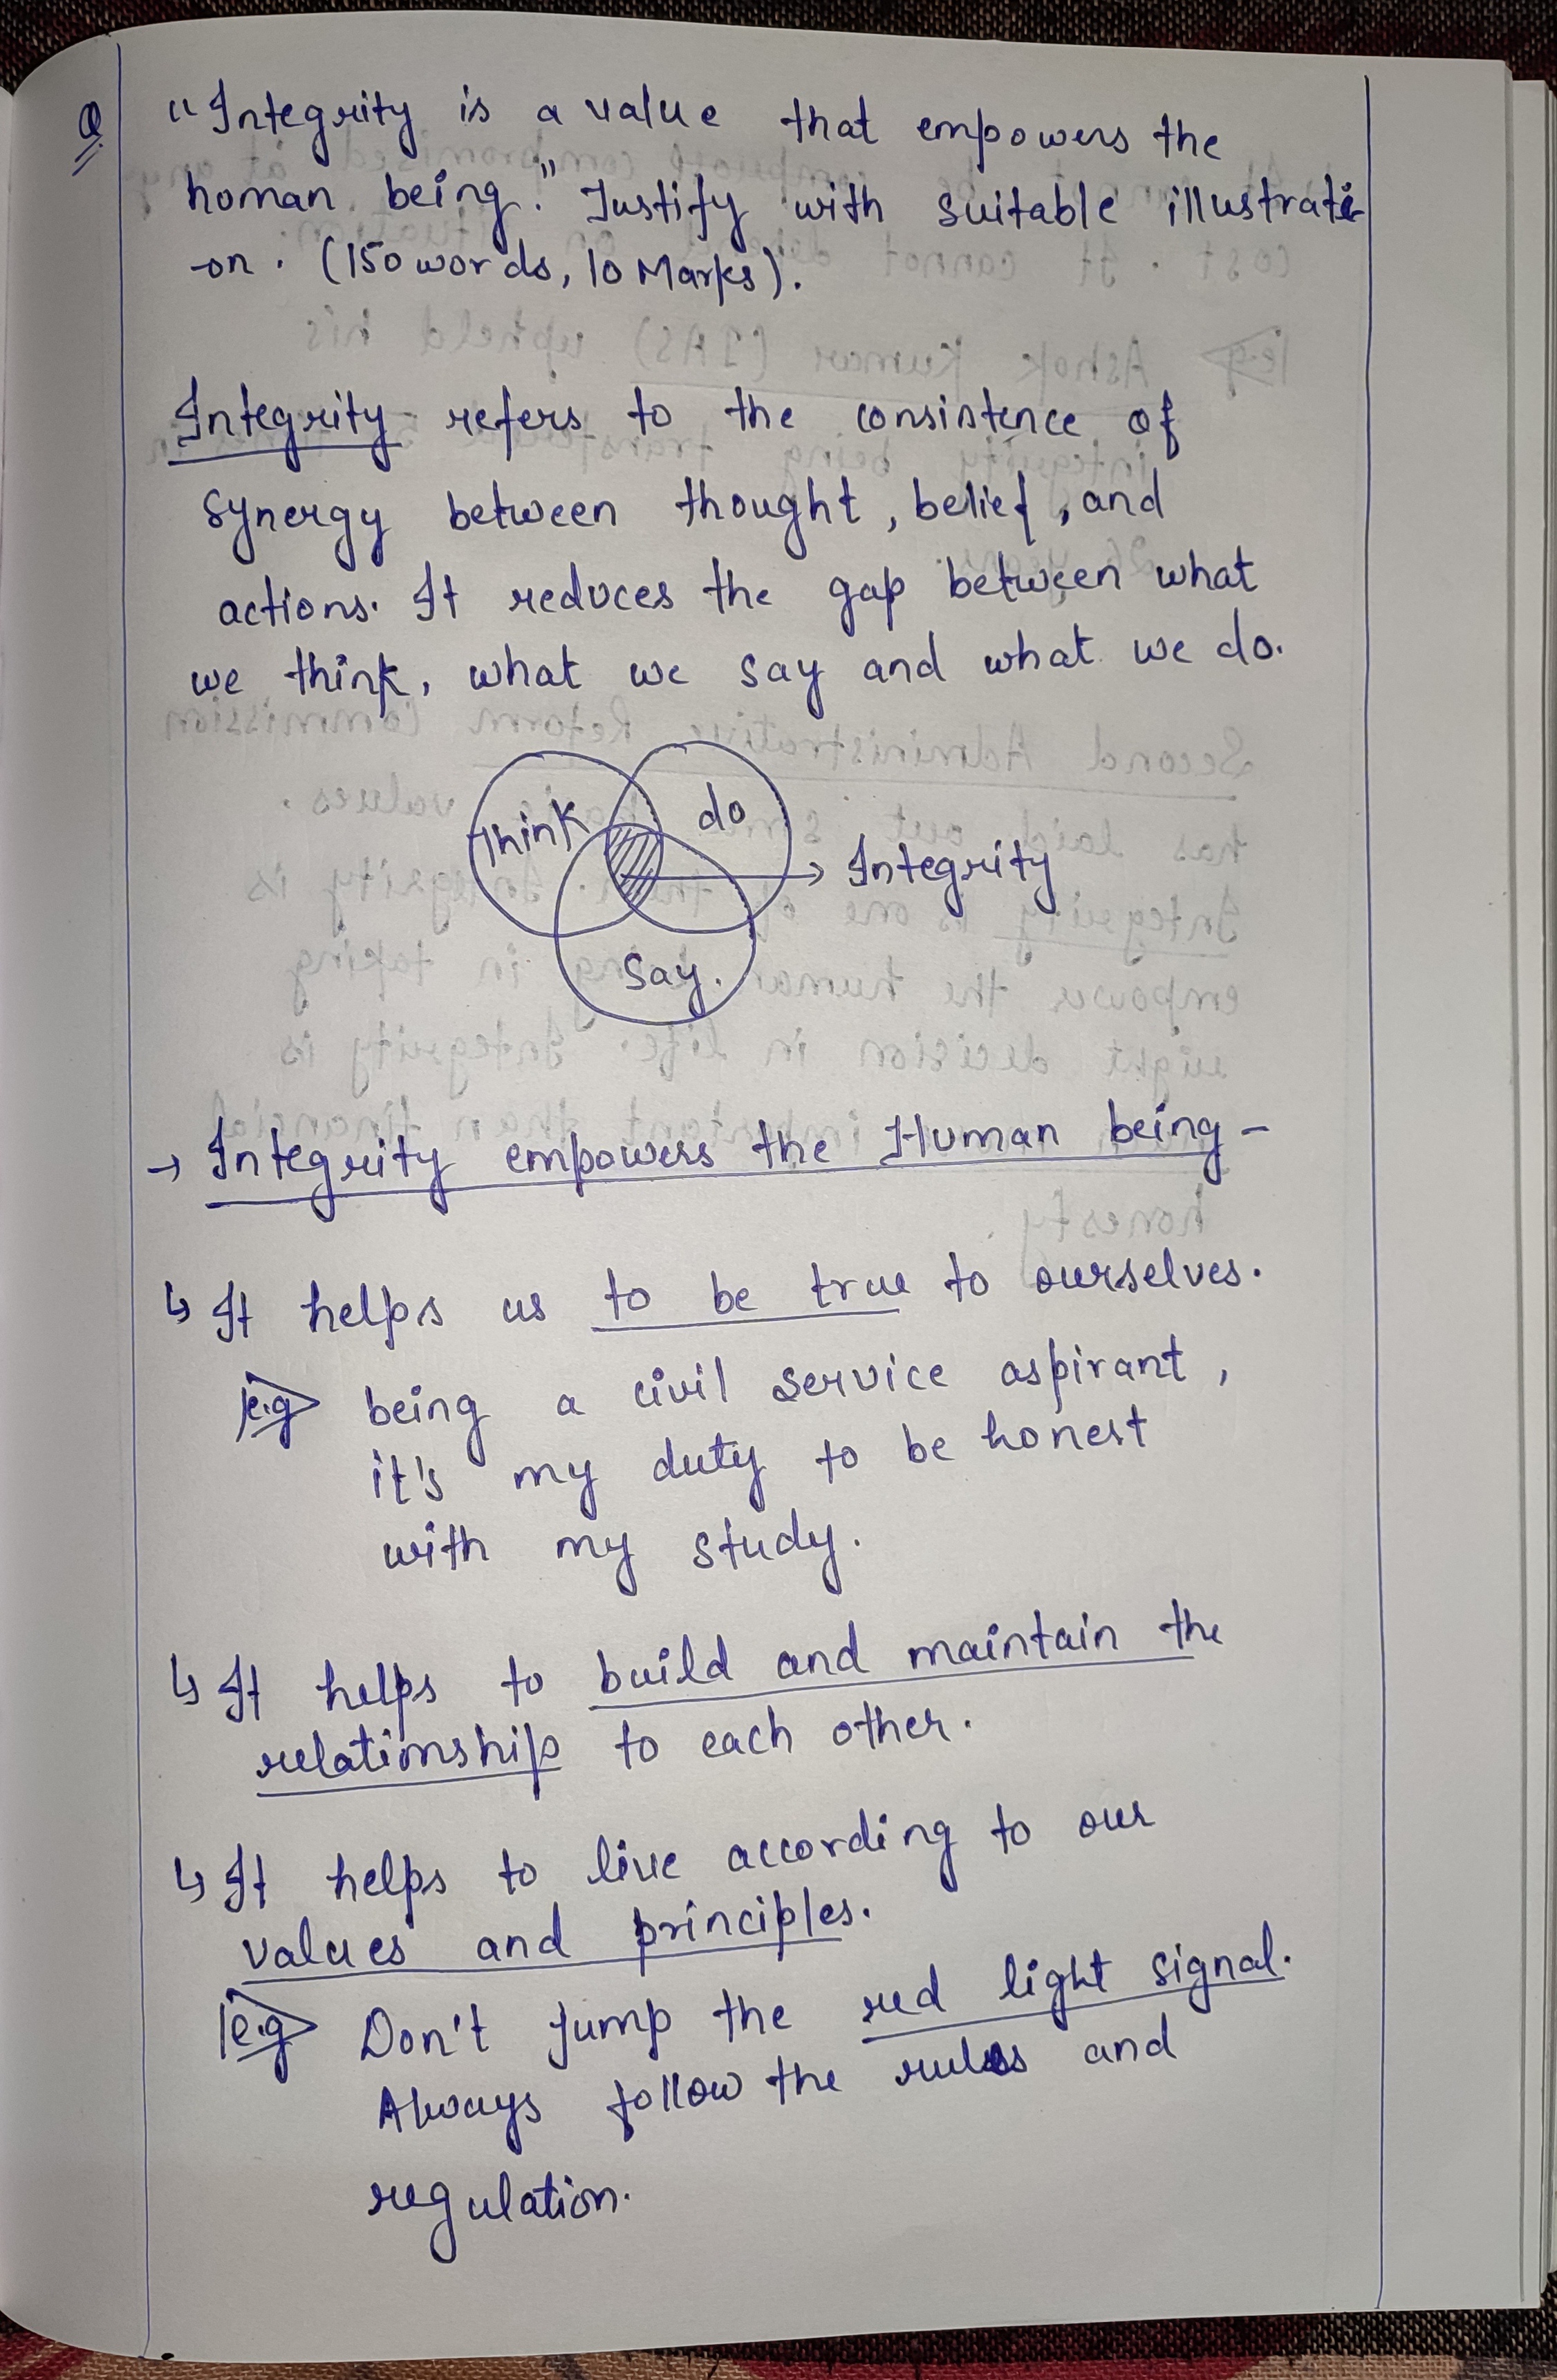 Q
"Integrity is a value that empowers the
human being." Justify with suitable illustrati
-on. (150 words, 10 Marks).
Integrity refers to the consistence of
synergy between thought, belief, and
actions. It reduces the gap between what
we think, what we say and what we do.
Think
do
→ Integrity
Say.
→ Integrity empowers the Human being -
↳ It helps us to be true to ourselves.
e.g being a civil service aspirant,
it's my duty to be honest
with my study.
↳ It helps to build and maintain the
relationship to each other.
↳ It helps to live according to our
values and principles.
e.g Don't jump the red light signal.
Always follow the rules and
regulation.